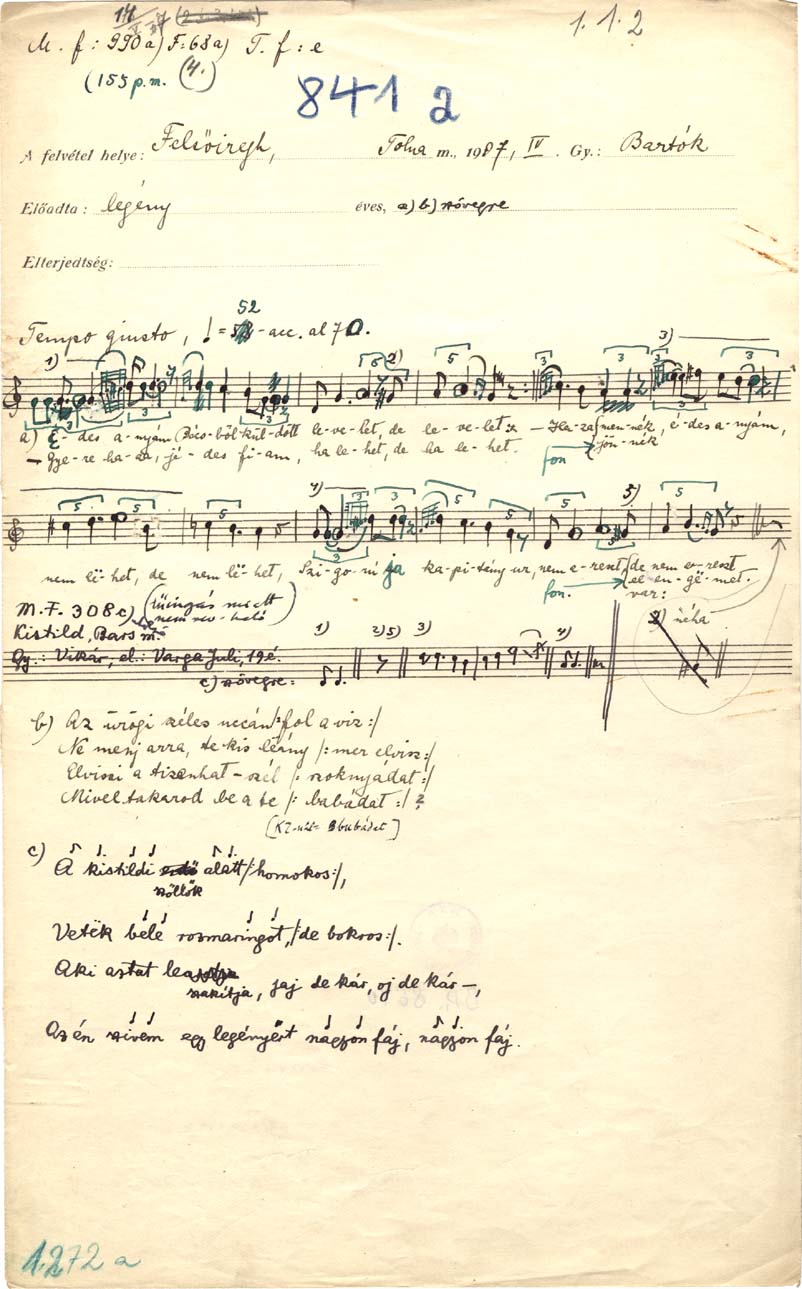 1.1.2
M. f: 990a) F: 68a) T. f: e
(155 p.m. (4.)
841 a
A felvétel helye: Felsőiregh, Tolna m., 1907, IV. Gy.: Bartók
Előadta: legény éves, a) b) szövegre
Elterjedtség:
Tempo giusto, ♩ = 52 - acc. al 70.
1) 2) 3)
a) É-des a-nyám Bécs-ből kül-dött le-ve-let, de le-ve-let: — Ha-za mën-nék, é-des a-nyám,
— Gye-re ha-za, jé-des fi-am, ha le-het, de ha le-het. fon jön-nék
4) 5)
nem lë-het, de nem lë-het, Szi-go-rú ja ka-pi-tány ur, nem e-reszt, de nem e-reszt
fon. el en-gë-met.
var:
M.F. 308c)
Kistild, Bars m.
Gy.: Vikár, el.: Varga Juli, 19 é.
c) szövegre:
1) 2) 5) 3) 4) néha
b) Az ürögi széles uccán /: fol a viz :/
Ne menj arra, te kis lëány /: mer elvisz :/
Elviszi a tizenhat-szél /: szoknyádat :/
Mivel takarod be a te /: babádat :/ ?
c) A kistildi szöllők alatt /: homokos :/,
Veték bélé rozmaringot, /: de bokros :/.
Aki asztat leszakítja, jaj de kár, oj de kár –,
Az én szivem egy legényért nagyon fáj, nagyon fáj.
1272 a